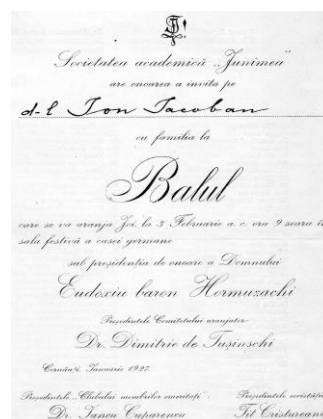 Societatea academică „Junimea"
are onoarea a invita pe
d-l Ion Iacoban
cu familia la
Balul
care se va aranja Joi, la 3 Februarie a. c. ora 9 seara în
sala festivă a casei germane
sub prezidenția de onoare a Domnului
Eudoxiu baron Hormuzachi
Președintele Comitetului aranjator
Dr. Dimitrie de Tușinschi
Cernăuți, Ianuarie 1927.
Președintele „Clubului membrilor emeritați":
Președintele societății
Dr. Iancu Cuparencu
Tit Cristureanu